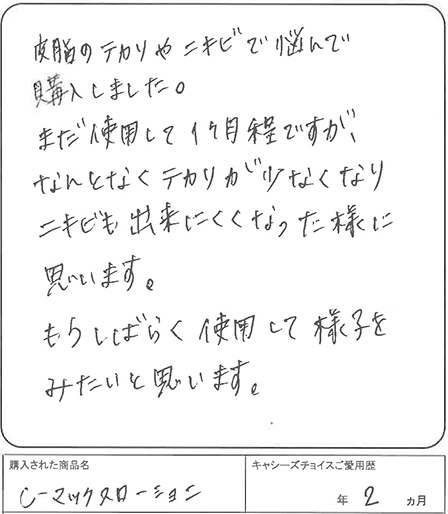 皮脂のテカリやニキビで悩んで
購入しました。
まだ使用して1ヶ月程ですが、
なんとなくテカリが少なくなり
ニキビも出来にくくなった様に
思います。
もうしばらく使用して様子を
みたいと思います。
購入された商品名
キャシーズチョイスご愛用歴
C-マックスローション
年 2 ヵ月